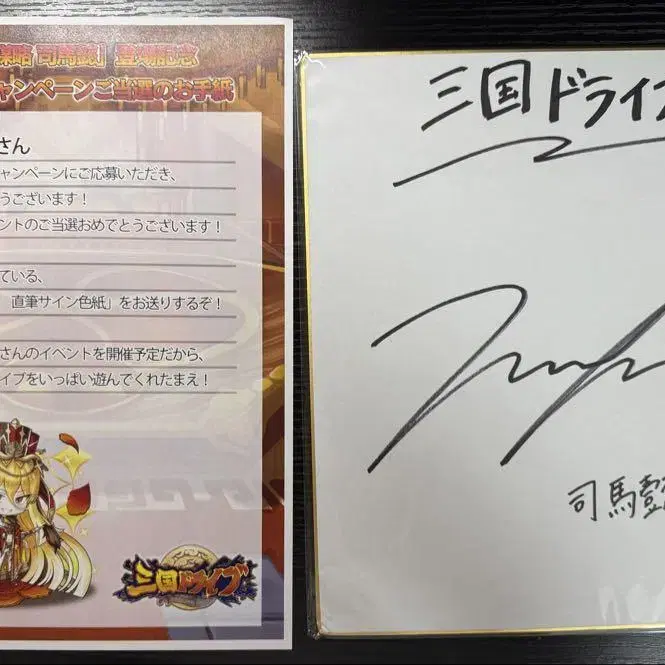 謀略 司馬懿」登場記念
ャンペーンご当選のお手紙
さん
ャンペーンにご応募いただき、
うございます！
ントのご当選おめでとうございます！
ている、
直筆サイン色紙」をお送りするぞ！
さんのイベントを開催予定だから、
イブをいっぱい遊んでくれたまえ！
三国ドライブ
三国ドライブ
司馬懿